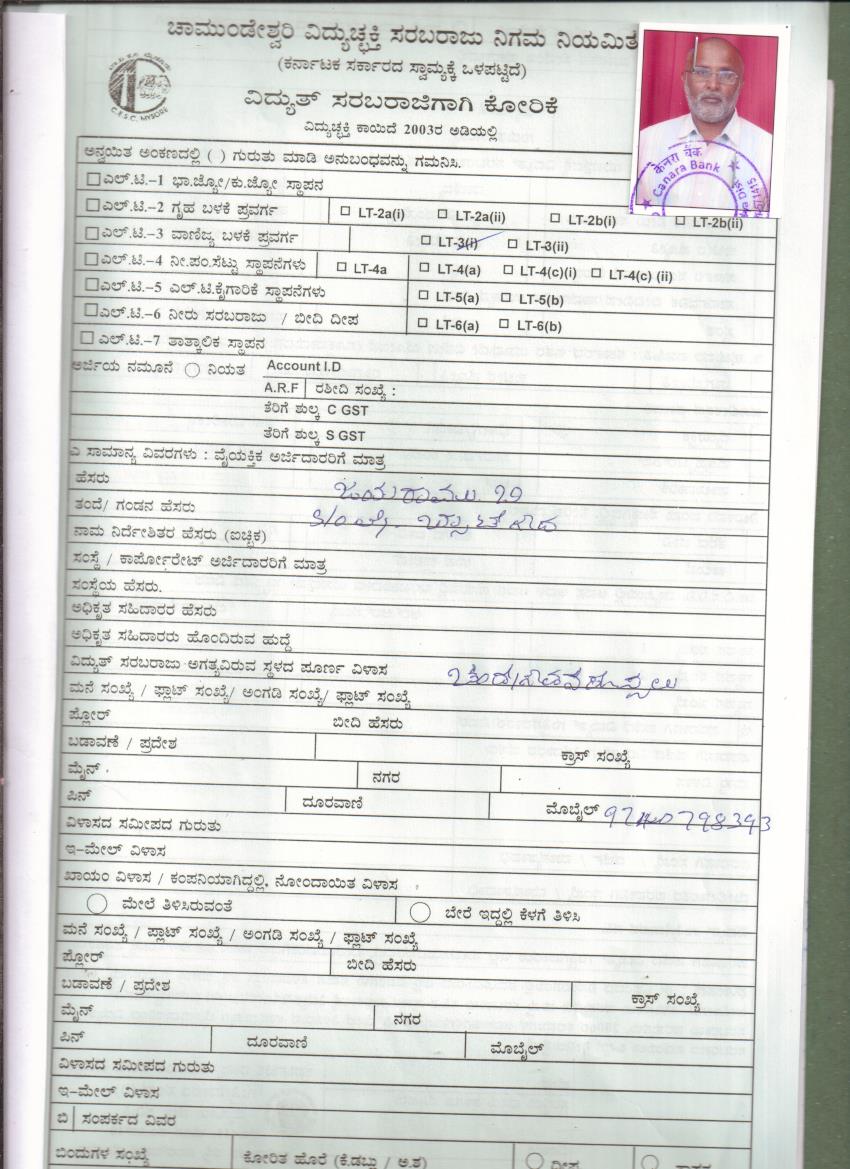 ಚಾಮುಂಡೇಶ್ವರಿ ವಿದ್ಯುಚ್ಛಕ್ತಿ ಸರಬರಾಜು ನಿಗಮ ನಿಯಮಿತ
(ಕರ್ನಾಟಕ ಸರ್ಕಾರದ ಸ್ವಾಮ್ಯಕ್ಕೆ ಒಳಪಟ್ಟಿದೆ)
C.E.S.C. MYSORE
ವಿದ್ಯುತ್ ಸರಬರಾಜಿಗಾಗಿ ಕೋರಿಕೆ
ವಿದ್ಯುಚ್ಛಕ್ತಿ ಕಾಯಿದೆ 2003ರ ಅಡಿಯಲ್ಲಿ
केनरा बैंक
Canara Bank
ಅನ್ವಯಿತ ಅಂಕಣದಲ್ಲಿ ( ) ಗುರುತು ಮಾಡಿ ಅನುಬಂಧವನ್ನು ಗಮನಿಸಿ.
ಎಲ್.ಟಿ.–1 ಭಾ.ಜ್ಯೋ/ಕು.ಜ್ಯೋ ಸ್ಥಾಪನ
ಎಲ್.ಟಿ.–2 ಗೃಹ ಬಳಕೆ ಪ್ರವರ್ಗ LT-2a(i) LT-2a(ii) LT-2b(i) LT-2b(ii)
ಎಲ್.ಟಿ.–3 ವಾಣಿಜ್ಯ ಬಳಕೆ ಪ್ರವರ್ಗ LT-3(i) LT-3(ii)
ಎಲ್.ಟಿ.–4 ನೀ.ಪಂ.ಸೆಟ್ಟು ಸ್ಥಾಪನೆಗಳು LT-4a LT-4(a) LT-4(c)(i) LT-4(c) (ii)
ಎಲ್.ಟಿ.–5 ಎಲ್.ಟಿ.ಕೈಗಾರಿಕೆ ಸ್ಥಾಪನೆಗಳು LT-5(a) LT-5(b)
ಎಲ್.ಟಿ.–6 ನೀರು ಸರಬರಾಜು / ಬೀದಿ ದೀಪ LT-6(a) LT-6(b)
ಎಲ್.ಟಿ.–7 ತಾತ್ಕಾಲಿಕ ಸ್ಥಾಪನ
ಅರ್ಜಿಯ ನಮೂನೆ ನಿಯತ Account I.D
A.R.F ರಶೀದಿ ಸಂಖ್ಯೆ :
ತೆರಿಗೆ ಶುಲ್ಕ C GST
ತೆರಿಗೆ ಶುಲ್ಕ S GST
ಎ ಸಾಮಾನ್ಯ ವಿವರಗಳು : ವೈಯಕ್ತಿಕ ಅರ್ಜಿದಾರರಿಗೆ ಮಾತ್ರ
ಹೆಸರು
ತಂದೆ/ ಗಂಡನ ಹೆಸರು
ನಾಮ ನಿರ್ದೇಶಿತರ ಹೆಸರು (ಐಚ್ಛಿಕ)
ಸಂಸ್ಥೆ/ ಕಾರ್ಪೋರೇಟ್ ಅರ್ಜಿದಾರರಿಗೆ ಮಾತ್ರ
ಸಂಸ್ಥೆಯ ಹೆಸರು.
ಅಧಿಕೃತ ಸಹಿದಾರರ ಹೆಸರು
ಅಧಿಕೃತ ಸಹಿದಾರರು ಹೊಂದಿರುವ ಹುದ್ದೆ
ವಿದ್ಯುತ್ ಸರಬರಾಜು ಅಗತ್ಯವಿರುವ ಸ್ಥಳದ ಪೂರ್ಣ ವಿಳಾಸ
ಮನೆ ಸಂಖ್ಯೆ / ಫ್ಲಾಟ್ ಸಂಖ್ಯೆ/ ಅಂಗಡಿ ಸಂಖ್ಯೆ/ ಫ್ಲಾಟ್ ಸಂಖ್ಯೆ
ಫ್ಲೋರ್ ಬೀದಿ ಹೆಸರು
ಬಡಾವಣೆ / ಪ್ರದೇಶ ಕ್ರಾಸ್ ಸಂಖ್ಯೆ
ಮೈನ್ ನಗರ
ಪಿನ್ ದೂರವಾಣಿ ಮೊಬೈಲ್ 9740798393
ವಿಳಾಸದ ಸಮೀಪದ ಗುರುತು
ಇ–ಮೇಲ್ ವಿಳಾಸ
ಖಾಯಂ ವಿಳಾಸ / ಕಂಪನಿಯಾಗಿದ್ದಲ್ಲಿ, ನೋಂದಾಯಿತ ವಿಳಾಸ
ಮೇಲೆ ತಿಳಿಸಿರುವಂತೆ ಬೇರೆ ಇದ್ದಲ್ಲಿ ಕೆಳಗೆ ತಿಳಿಸಿ
ಮನೆ ಸಂಖ್ಯೆ / ಪ್ಲಾಟ್ ಸಂಖ್ಯೆ / ಅಂಗಡಿ ಸಂಖ್ಯೆ / ಫ್ಲಾಟ್ ಸಂಖ್ಯೆ
ಫ್ಲೋರ್ ಬೀದಿ ಹೆಸರು
ಬಡಾವಣೆ / ಪ್ರದೇಶ ಕ್ರಾಸ್ ಸಂಖ್ಯೆ
ಮೈನ್ ನಗರ
ಪಿನ್ ದೂರವಾಣಿ ಮೊಬೈಲ್
ವಿಳಾಸದ ಸಮೀಪದ ಗುರುತು
ಇ–ಮೇಲ್ ವಿಳಾಸ
ಬಿ ಸಂಪರ್ಕದ ವಿವರ
ಬಿಂದುಗಳ ಸಂಖ್ಯೆ ಕೋರಿತ ಹೊರೆ (ಕೆ.ಡಬ್ಲು / ಅ.ಶ)